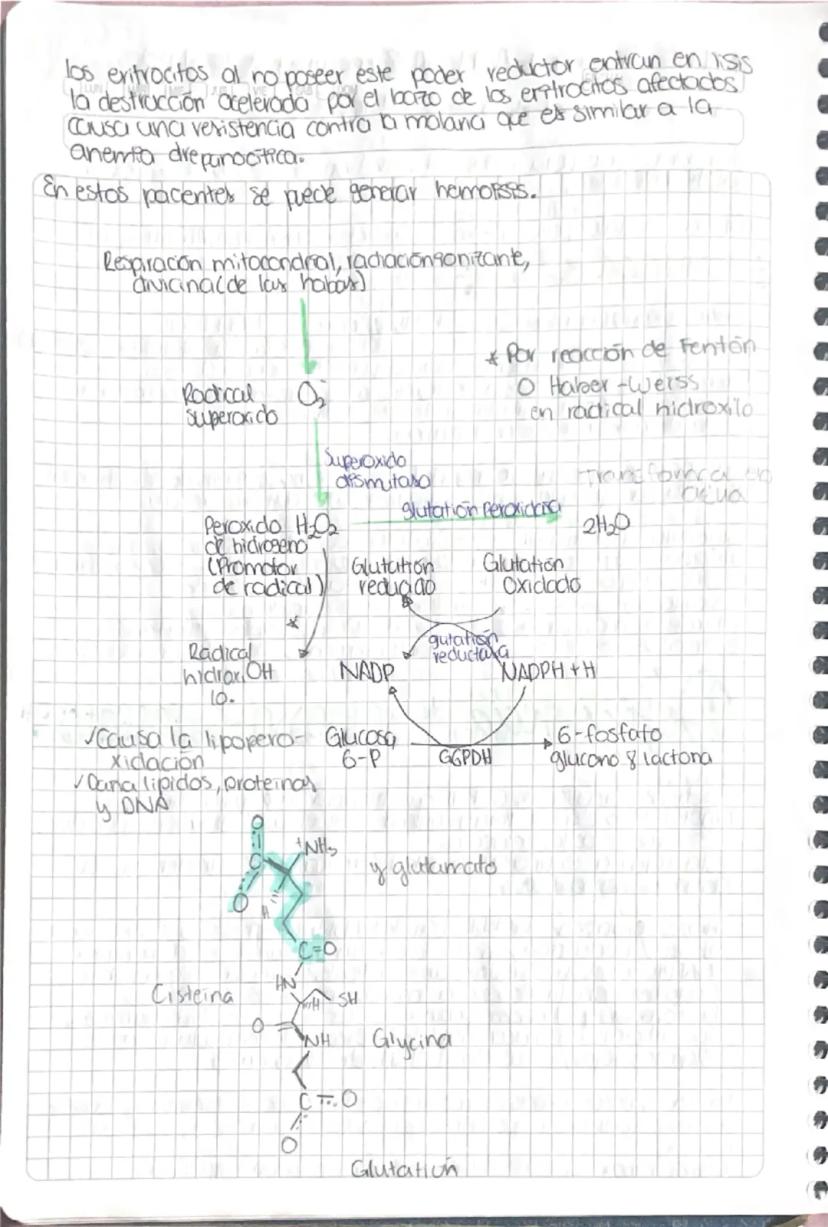 los eritrocitos al no poseer este poder reductor entran en lisis
la destrucción acelerada por el bazo de los eritrocitos afectados
causa una resistencia contra la malaria que es similar a la
anemia drepanocitica.
En estos pacientes se puede generar hemolisis.
Respiración mitocondrial, radiación ionizante,
divicina (de las habas)
* Por reacción de Fenton
O Haber-Weiss
en radical hidroxilo
Radical O₂⁻
superoxido
Superoxido
dismutasa
Transforma en
agua
glutatión peroxidasa
Peroxido H₂O₂ 2H₂O
de hidrogeno
(Promotor
de radical)
Glutatión Glutatión
reducido Oxidado
*
glutatión
reductasa
Radical
hidroxi OH
lo.
NADP NADPH + H
✓Causa la lipopero-
xidación
Glucosa 6-fosfato
6-P G6PDH glucono δ lactona
✓Dana lipidos, proteinas
y DNA
O
C
O
⁺NH₃
H
γ glutamato
C=O
HN
Cisteina
H SH
O
NH Glycina
C O
O
Glutatión